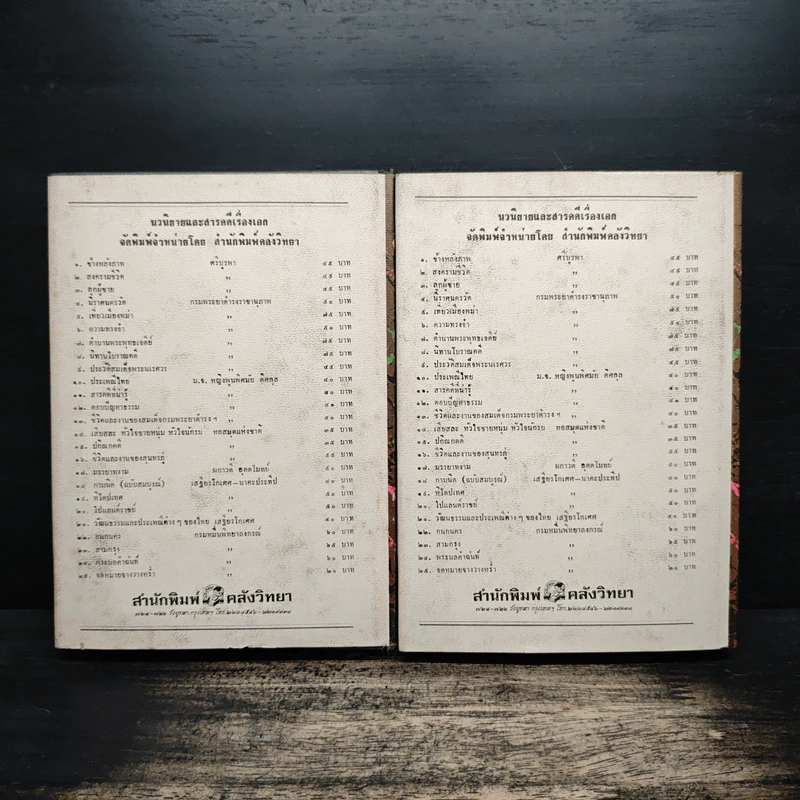 นวนิยายและสารคดีเรื่องเอก
จัดพิมพ์จำหน่ายโดย สำนักพิมพ์คลังวิทยา
๑. ข้างหลังภาพ ศรีบูรพา ๔๕ บาท
๒. สงครามชีวิต ,, ๔๕ บาท
๓. ลูกผู้ชาย ,, ๔๕ บาท
๔. นิราศนครวัด กรมพระยาดำรงราชานุภาพ ๕๐ บาท
๕. เที่ยวเมืองพม่า ,, ๗๕ บาท
๖. ความทรงจำ ,, ๕๐ บาท
๗. ตำนานพระพุทธเจดีย์ ,, ๗๕ บาท
๘. นิทานโบราณคดี ,, ๗๕ บาท
๙. ประวัติสมเด็จพระนเรศวร ,, ๔๕ บาท
๑๐. ประเพณีไทย ม.จ. หญิงพูนพิศมัย ดิศกุล ๔๐ บาท
๑๑. สารคดีที่น่ารู้ ,, ๔๐ บาท
๑๒. ตอบปัญหาธรรม ,, ๔๑ บาท
๑๓. ชีวิตและงานของสมเด็จกรมพระยาดำรง ฯ ,, ๔๐ บาท
๑๔. เสียสละ หัวใจชายหนุ่ม หัวใจนักรบ หอสมุดแห่งชาติ ๓๕ บาท
๑๕. ปกิณกคดี ,, ๓๕ บาท
๑๖. ชีวิตและงานของสุนทรภู่ ,, ๕๕ บาท
๑๗. มรรยาทงาม ผกาวดี อุตตโมทย์ ๕๐ บาท
๑๘. กามนิต (ฉบับสมบูรณ์) เสฐียรโกเศศ-นาคะประทีป ๔๐ บาท
๑๙. หิโตปเทศ ,, ๕๐ บาท
๒๐. ไปแลนด์ราชย์ ,, ๕๐ บาท
๒๑. วัฒนธรรมและประเพณีต่าง ๆ ของไทย เสฐียรโกเศศ ๔๐ บาท
๒๒. กนกนคร กรมหมื่นพิทยาลงกรณ์ ๖๐ บาท
๒๓. สามกรุง ,, ๖๕ บาท
๒๔. พระนลคำฉันท์ ,, ๖๐ บาท
๒๕. จดหมายจางวางหร่ำ ,, ๒๐ บาท
สำนักพิมพ์ คลังวิทยา
นวนิยายและสารคดีเรื่องเอก
จัดพิมพ์จำหน่ายโดย สำนักพิมพ์คลังวิทยา
๑. ข้างหลังภาพ ศรีบูรพา ๔๕ บาท
๒. สงครามชีวิต ,, ๔๕ บาท
๓. ลูกผู้ชาย ,, ๔๕ บาท
๔. นิราศนครวัด กรมพระยาดำรงราชานุภาพ ๕๐ บาท
๕. เที่ยวเมืองพม่า ,, ๗๕ บาท
๖. ความทรงจำ ,, ๕๐ บาท
๗. ตำนานพระพุทธเจดีย์ ,, ๗๕ บาท
๘. นิทานโบราณคดี ,, ๗๕ บาท
๙. ประวัติสมเด็จพระนเรศวร ,, ๔๕ บาท
๑๐. ประเพณีไทย ม.จ. หญิงพูนพิศมัย ดิศกุล ๔๐ บาท
๑๑. สารคดีที่น่ารู้ ,, ๔๐ บาท
๑๒. ตอบปัญหาธรรม ,, ๔๑ บาท
๑๓. ชีวิตและงานของสมเด็จกรมพระยาดำรง ฯ ,, ๔๐ บาท
๑๔. เสียสละ หัวใจชายหนุ่ม หัวใจนักรบ หอสมุดแห่งชาติ ๓๕ บาท
๑๕. ปกิณกคดี ,, ๓๕ บาท
๑๖. ชีวิตและงานของสุนทรภู่ ,, ๕๕ บาท
๑๗. มรรยาทงาม ผกาวดี อุตตโมทย์ ๕๐ บาท
๑๘. กามนิต (ฉบับสมบูรณ์) เสฐียรโกเศศ-นาคะประทีป ๔๐ บาท
๑๙. หิโตปเทศ ,, ๕๐ บาท
๒๐. ไปแลนด์ราชย์ ,, ๕๐ บาท
๒๑. วัฒนธรรมและประเพณีต่าง ๆ ของไทย เสฐียรโกเศศ ๔๐ บาท
๒๒. กนกนคร กรมหมื่นพิทยาลงกรณ์ ๖๐ บาท
๒๓. สามกรุง ,, ๖๕ บาท
๒๔. พระนลคำฉันท์ ,, ๖๐ บาท
๒๕. จดหมายจางวางหร่ำ ,, ๒๐ บาท
สำนักพิมพ์ คลังวิทยา